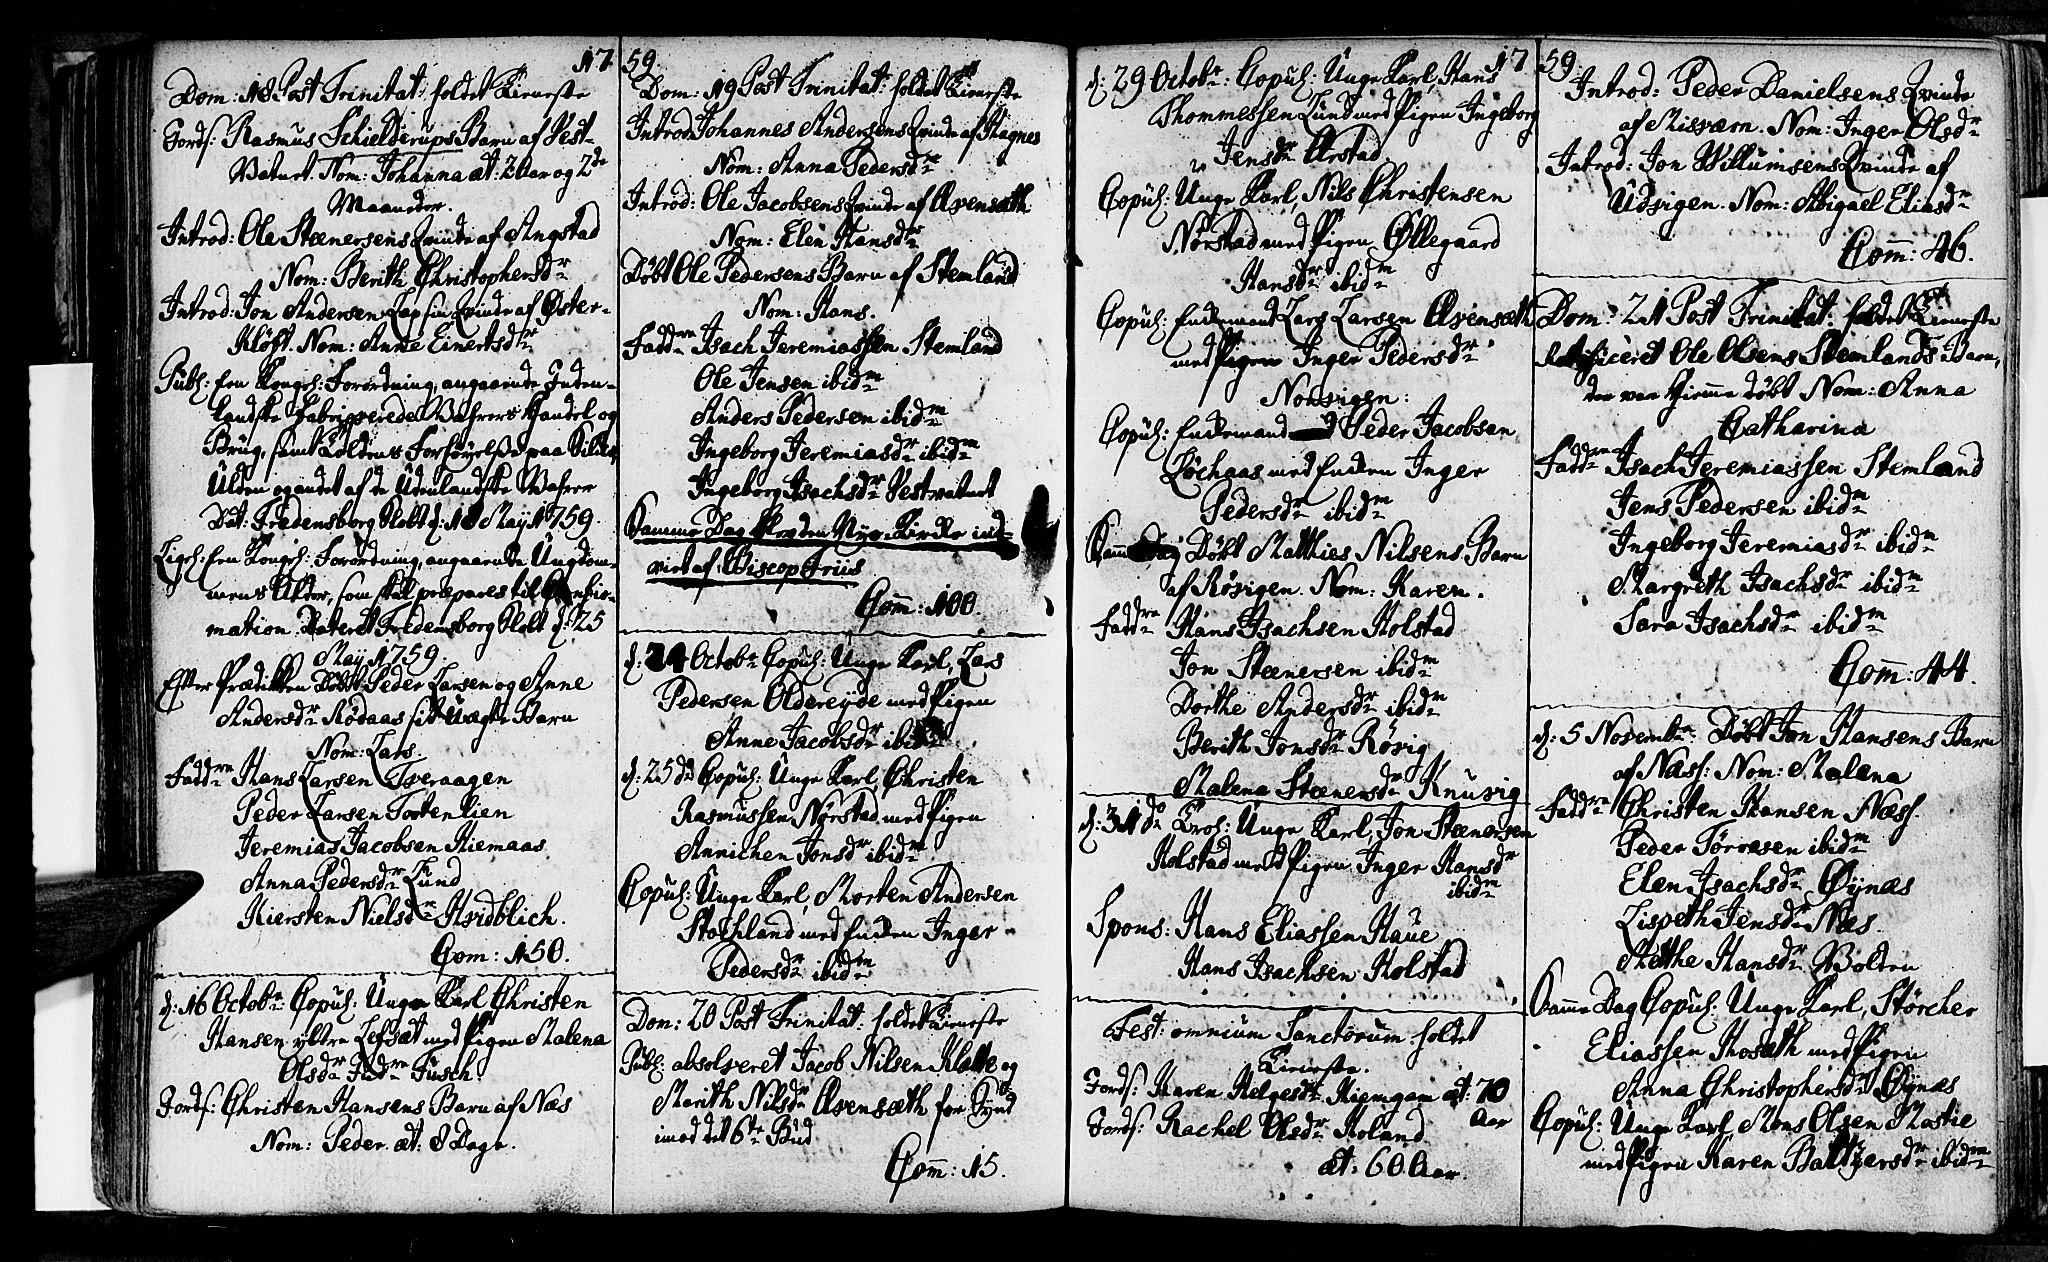 1759
Dom: 18 Post Trinitat: holdet Tieneste
Jords: Rasmus Schielderups Barn af Vest-
Vatnet. Nom: Johanna æt: 2 Aar og 2de
Maaneder.
Introd: Ole Steenersens Qvinde af Angstad
Nom: Berith Christophersdr
Introd: Jon Andersen Lap sin Qvinde af Øster-
Kløft. Nom: Anne Einertsdr
Publ: Een Kongel: Forordning, angaaende Inden-
landske Fabriqverede Vahrers Handel og
Brug, samt Toldens Forhøyelse paa Silke,
Ulden og andet af de Udenlandske Vahrer
Dat: Fredensborg Slott d: 18 May 1759.
Ligel: Een Kongel: Forordning, angaaende Ungdom-
mens Alder, som skal præpares til Confir-
mation. Dateret Fredensborg Slott d: 25
May 1759.
Efter Prædiken Døbt Peder Larsen og Anne
Andersdr Rødaas sit Uægte Barn
Nom: Lars.
Faddrne Hans Larsen Tveraagen
Peder Larsen Tortenlien
Jeremias Jacobsen Hiemaas
Anna Pedersdr Lund
Kiersten Nielsdr Hvidblich.
Com: 150.
d: 16 Octobr Copul: Unge Karl Christen
Hansen yttre Lefsæt med Pigen Malena
Olsdr Fusch.
Jords: Christen Hansens Barn af Næs
Nom: Peder æt: 8 Dage.
Dom: 19 Post Trinitat: holdet Tieneste
Introd: Johannes Andersens Qvinde af Hagnes
Nom: Anna Pedersdr
Introd: Ole Jacobsens Qvinde af Alvensæth
Nom: Elen Hansdr
Døbt Ole Pedersens Barn af Stemland
Nom: Hans.
Faddrne Isach Jeremiassen Stemland
Ole Jensen ibidm
Anders Pedersen ibidm
Ingeborg Jeremiasdr ibidm
Ingeborg Isachsdr Vestvatnet
Samme Dag blev den Nye Kircke ind-
viet af Biscop Friis
Comm: 100.
d: 24 Octobr Copul: Unge Karl, Lars
Pedersen Oldereyde med Pigen
Anne Jacobsdr ibidm
d: 25 do Copul: Unge Karl, Christen
Rasmussen Nørstad med Pigen
Annichen Jonsdr ibidm
Copul: Unge Karl, Morten Andersen
Stochland med Enken Inger
Pedersdr ibidm
Dom: 20 Post Trinitat: holdet Tieneste
Publ: absolveret Jacob Nilsen Klette og
Marith Nilsdr Alvensæth for Synd
imod det 6te Bud
Comm: 15.
1759
d: 29 Octobr: Copul: Unge Karl, Hans
Thommessen Lund med Pigen Ingeborg
Jensdr Ærstad
Copul: Unge Karl, Nils Christensen
Nørstad med Pigen Øllegaard
Hansdr ibidm
Copul: Enkemand Lars Larsen Alvensæth
med Pigen Inger Pedersdr
Norvigen:
Copul: Enkemand Peder Jacobsen
Løchaas med Enken Inger
Pedersdr ibidm
Samme Dag Døbt Matthies Nilsens Barn
af Røsvigen. Nom: Karen.
Faddrne Hans Isachsen Holstad
Jon Steenersen ibidm
Dorthe Andersdr ibidm
Berith Jonsdr Røsvig
Malena Steenersdr Knusvig
d: 31 do Trol: Unge Karl, Jon Steenersen
Holstad med Pigen Inger Hansdr
ibidm
Spons: Hans Eliassen Haue
Hans Isachsen Holstad
Fest: omnium Sanctorum holdet
Tieneste.
Jords: Karen Helgesdr Hiemgam æt: 70
Aar
Jords: Rachel Olsdr Holand
æt: 60 Aar.
Introd: Peder Danielsens Qvinde
af Misværn. Nom: Inger Olsdr
Introd: Jon Willumsens Qvinde af
Udvigen. Nom: Abigael Eliasdr
Comm: 46.
Dom: 21 Post Trinitat: holdet Tieneste
Ratificeret Ole Olsens Stemlands Barn,
der var hiemme døbt Nom: Anna
Catharina
Faddrne Isach Jeremiassen Stemland
Jens Pedersen ibidm
Ingeborg Jeremiasdr ibidm
Margreth Isachsdr ibidm
Sara Isachsdr ibidm
Comm: 44.
d: 5 Novembr. Døbt Jon Hansens Barn
af Næss: Nom: Malena
Faddrne Christen Hansen Næss.
Peder Torresen ibidm
Elen Isachsdr Øynæs
Lispeth Jensdr Næs.
Methe Hansdr Volden
Samme Dag Copul: Unge Karl, Størcher
Eliassen Hosæth med Pigen
Anna Christophersdr Øynæs
Copul: Unge Karl, Mons Olsen Mostie
med Pigen Karen Baltzersdr ibidm